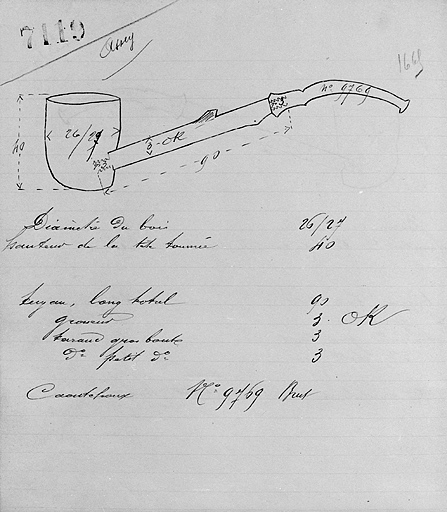 7119
1669
No 9769
26/27
40
3. OK
90
3
Diamètre du bois 26/27
hauteur de la tête tournée 40
tuyau, long total 90
grosseur 3. OK
taraud gros bout 3
do petit do 3
Caoutchouc No 9769 Brut